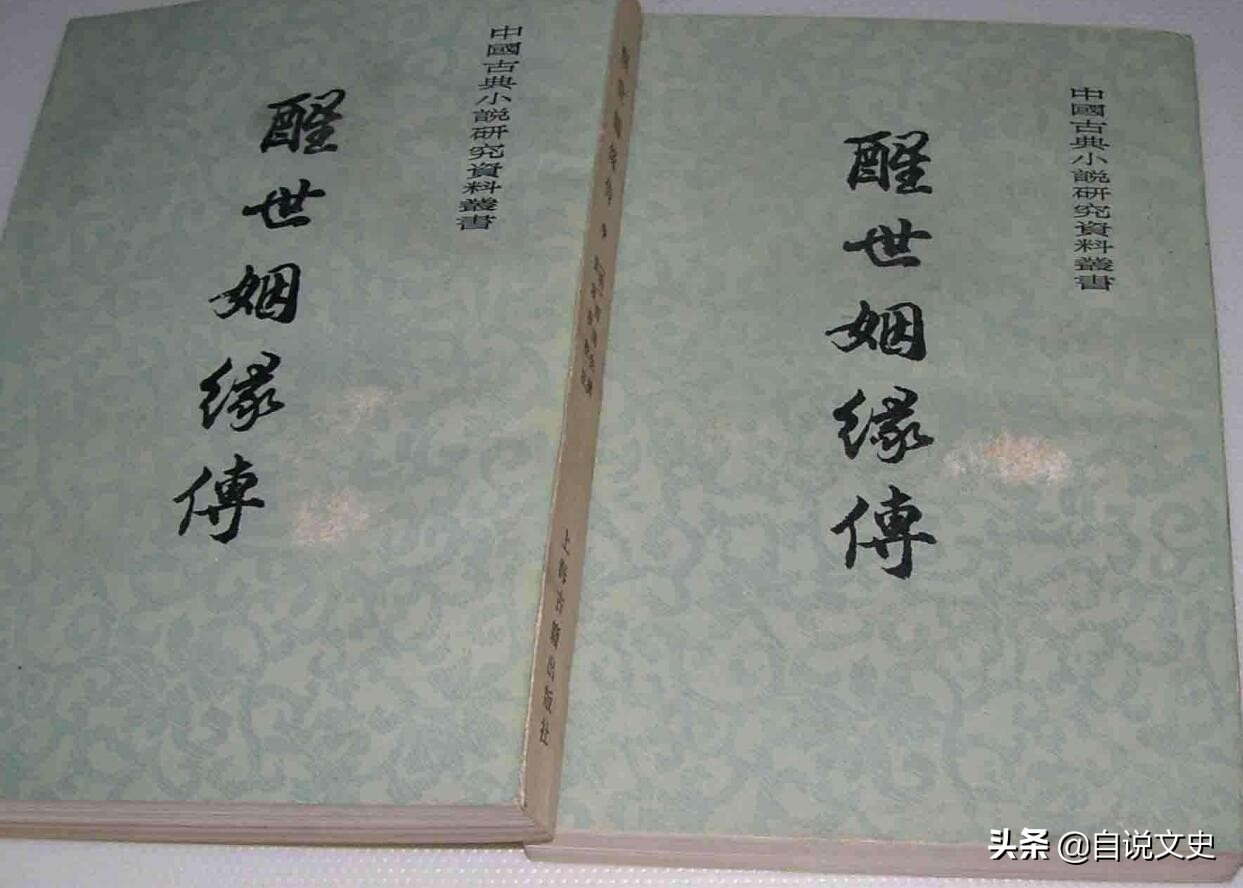 中國古典小說研究資料叢書
醒世姻緣傳
上海古籍出版社
中國古典小說研究資料叢書
醒世姻緣傳
头条 @自说文史